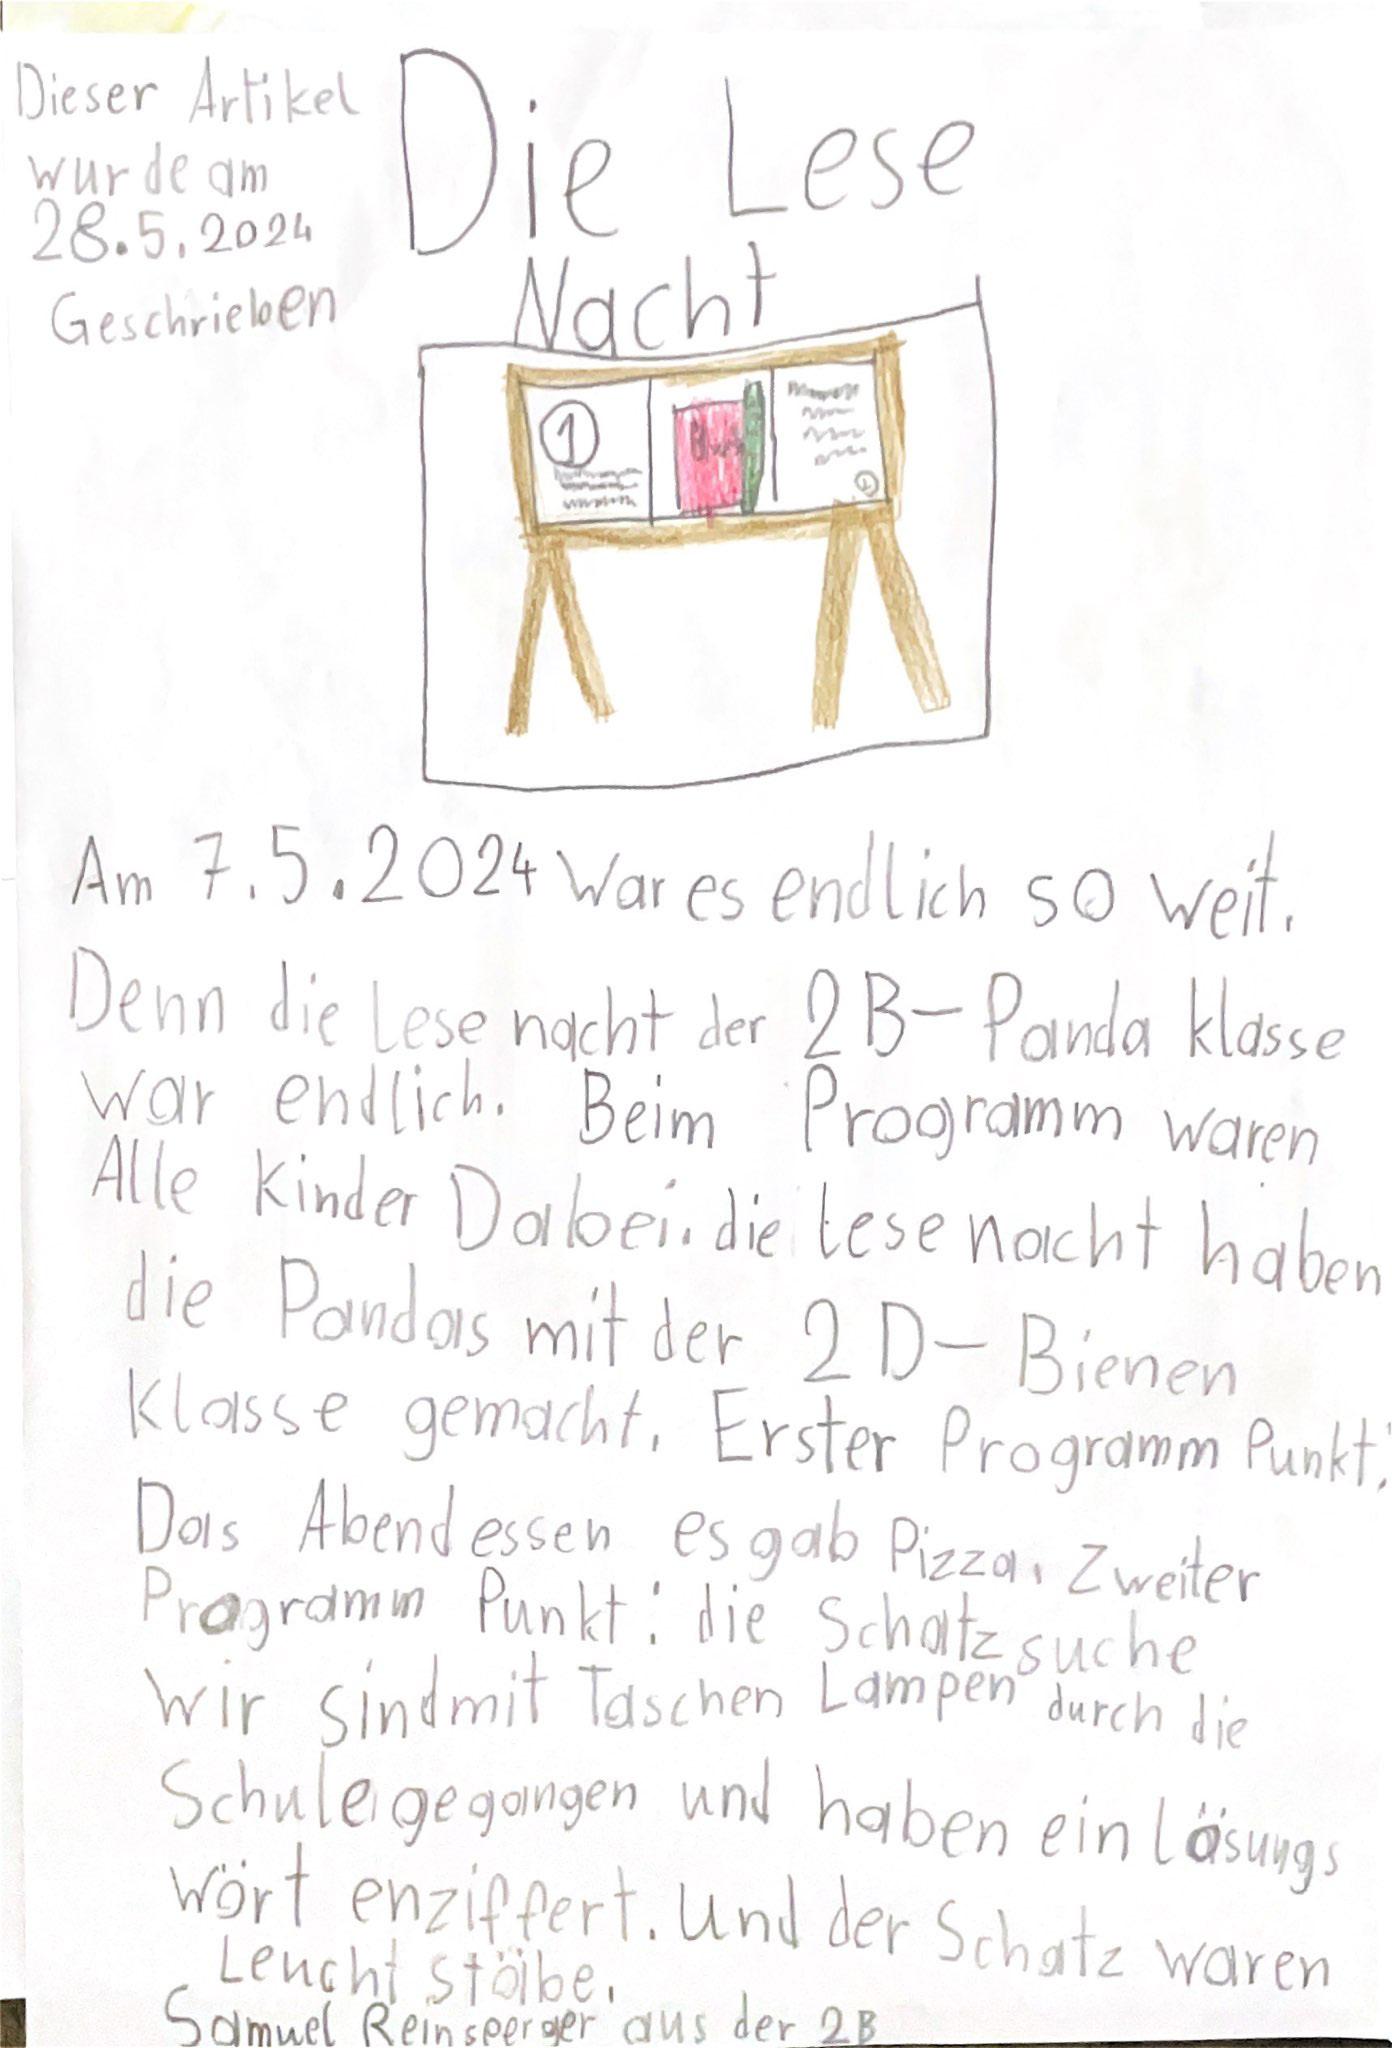 Dieser Artikel
wurde am
28.5.2024
Geschrieben
Die Lese
Nacht
1
Am 7.5.2024 War es endlich so weit.
Denn die Lese nacht der 2B-Panda klasse
war endlich. Beim Programm waren
Alle Kinder Dabei. die lese nacht haben
die Pandas mit der 2D-Bienen
Klasse gemacht. Erster Programm Punkt:
Das Abendessen es gab Pizza. Zweiter
Programm Punkt: die Schatz suche
Wir sind mit Taschen Lampen durch die
Schule gegangen und haben ein lösungs
wört enziffert. Und der Schatz waren
Leucht stäbe.
Samuel aus der 2B